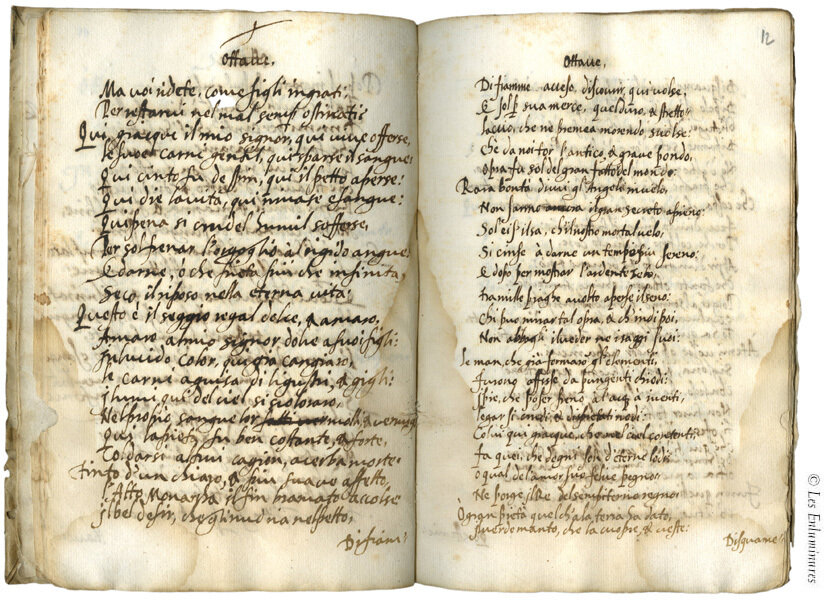 Ottave.
Ma voi ridete, come figli ingrati;
Per restarvi nel mal sempr' ostinati:
Qui, giacque il mio signor, qui vive offerse,
le sue carni qui sparse il sangue:
Qui cinto fu de spin, qui il petto aperse:
Qui diè la vita, qui rimase esangue:
Qui pena si crudel humil sofferse,
Per sol frenar l'orgoglio al rigido angue:
E darne, ò che pietà più che infinita,
Seco, il riposo nella eterna vita:
Questo è il seggio regal dolce, & amaro,
Amaro al mio signor, dolce a suoi figli:
In lucido color, qui già cangiaro,
le carni a guisa di ligustri, & gigli:
i lumi, que del ciel si scoloraro,
Nel propio sangue lor
Qui la pietà fu ben costante, & forte,
Tol darsi a sui cagion, acerba morte.
tinto d'un chiaro, & più suave affetto,
l'Alto Monarcha il fin bramato accolse
il bel desir, che gli nudria nel petto,
Di fiam
12
Ottave.
Di fiamme acceso, discourir, qui volse;
E sol sua mercè, quel duro, & stretto
laccio, che ne premea morendo, sciolse:
Che da noi tor l'antico, & grave pondo,
Opra fu sol del gran fattor del mondo:
Rara bontà, di cui gl'Angeli in cielo,
Non il gran secreto apieno:
ch'il nostro mortal velo,
Si cinse à darne un tempo più sereno:
E dopo per mostrar l'ardente zelo,
tra mille piaghe avolto aperse il seno:
Chi può mirar tal opra, & chi di poi,
Non il veder ne raggi suoi:
le man, che già formaro gl'elementi
furono affisse da pungenti chiodi:
i piè, che poser freno à l'acq, à i venti,
legar si crudi, & dispietati modi:
Colui qui giacque, che nel ciel contenti,
fa quei, che degni son d'eterne lodi:
o qual de l'amor suo felice pegno:
Ne porge, il Re del sempiterno regno,
O gran pietà quel ch'a la terra ha dato,
il verde manto, che la cuopre, & veste:
Disquame
© Les Enluminures